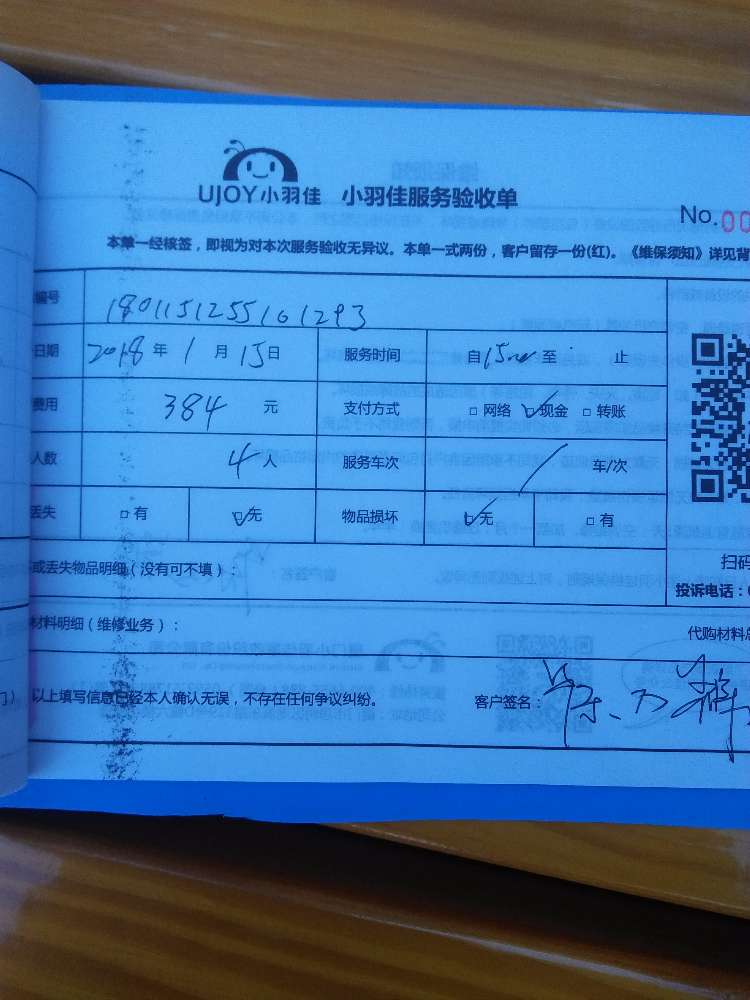 UJOY小羽佳 小羽佳服务验收单
No.00
本单一经核签，即视为对本次服务验收无异议。本单一式两份，客户留存一份(红)。《维保须知》详见背
编号 1801151255101293
日期 2018年1月15日 服务时间 自 至 止
费用 384元 支付方式 □网络 ☑现金 □转账
人数 4人 服务车次 / 车/次
丢失 □有 ☑无 物品损坏 ☑无 □有
扫码
或丢失物品明细（没有可不填）：
投诉电话：
材料明细（维修业务）： 代购材料总
门） 以上填写信息已经本人确认无误，不存在任何争议纠纷。 客户签名：